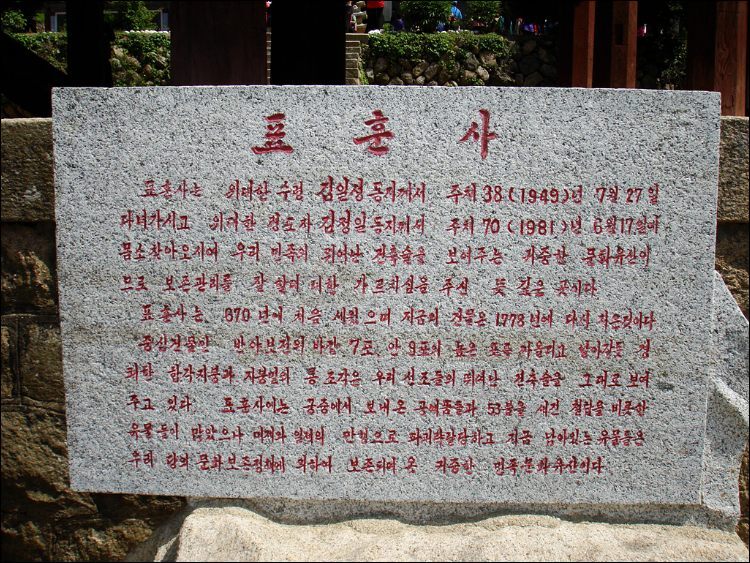 표훈사
표훈사는 위대한 수령 김일성동지께서 주체 38 (1949)년 7월 27일
다녀가시고 위대한 령도자 김정일동지께서 주체 70 (1981)년 6월17일에
몸소찾아오시여 우리 민족의 뛰여난 건축술을 보여주는 귀중한 문화유산이
므로 보존관리를 잘 할데 대한 가르치심을 주신 뜻 깊은 곳이다.
표훈사는 670년에 처음 세웠으며 지금의 건물은 1778년에 다시 지은것이다
중심건물인 반야보전의 바깥 7포, 안 9포의 높은 포를 떠올리고 날아갈듯 경
쾌한 합각지붕과 룡조각은 우리 선조들의 뛰여난 건축술을 그대로 보여
주고 있다. 표훈사에는 궁중에서 보내온 공예품들과 53불을 새긴 철탑을 비롯한
유물들이 많았으나 미제와 일제의 만행으로 파괴략탈당하고 지금 남아있는 유물들은
우리 당의 문화보존정책에 의하여 보존되여 온 귀중한 민족문화유산이다.